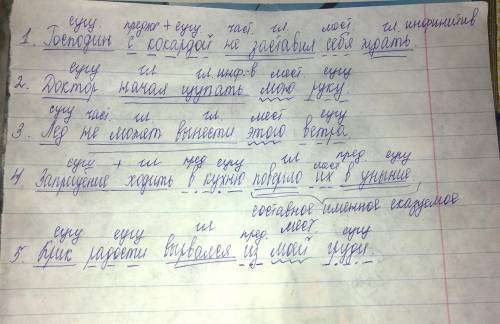 сущ. предлог + сущ част. гл. мест гл. инфинитив
1. Господин с кокардой не заставил себя ждать.
сущ гл гл. инф-в мест. сущ
2. Доктор начал щупать мою руку.
сущ част. гл гл. мест сущ
3. Лед не может вынести этого ветра
сущ + гл пред сущ гл мест пред. сущ
4 Запрещение ходить в кухню повергло их в уныние.
составное именное сказуемое
сущ сущ гл пред. мест. сущ
5 Крик радости вырвался из моей груди.